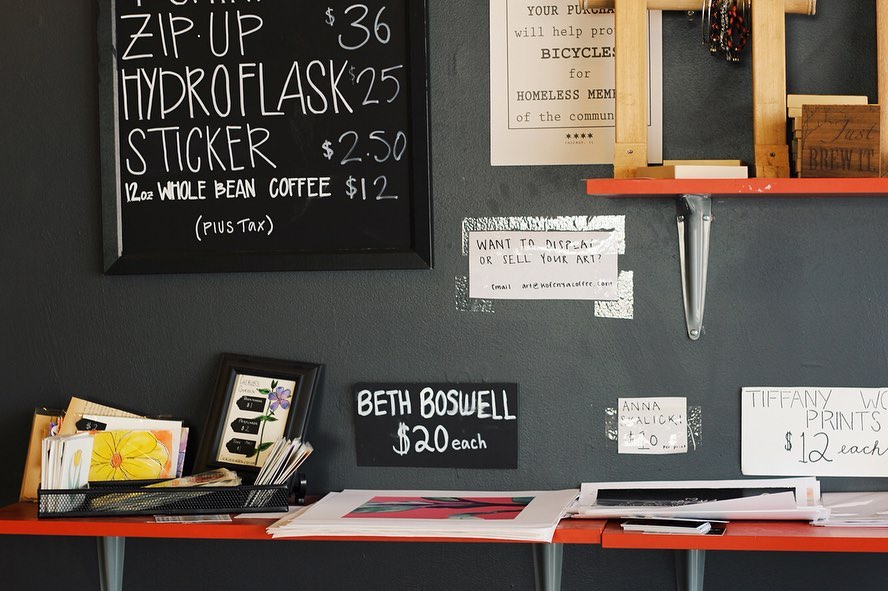 ZIP-UP $36
HYDROFLASK $25
STICKER $2.50
12oz WHOLE BEAN COFFEE $12
(PLUS TAX)
YOUR PURCHA
will help pro
BICYCLES
for
HOMELESS MEM
of the commun
****
Just
BREW IT
WANT TO DISPLAY
OR SELL YOUR ART?
Email
BETH BOSWELL
$20 each
ANNA
SKALICKI
$20
TIFFANY WO
PRINTS
$12 each